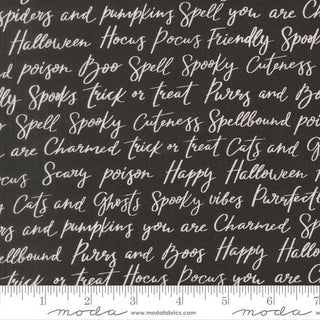 spiders and pumpkins Spell you are Ch
Halloween Hocus Pocus Friendly Spook
d poison Boo Spell Spooky Cuteness
dly Spooks trick or treat Purrrs and B
g Spell Spooky Cuteness Spellbound poi
are Charmed trick or treat Cats and G
ocus Scary poison Happy Halloween
y Cats and Ghosts Spooky vibes Purrfecti
rs and pumpkins you are Charmed Sp
ellbound Purrs and Boos Happy Hallo
trick or treat Hocus Pocus you are C
1 2 3 4 5 6 7
moda www.modafabrics.com moda